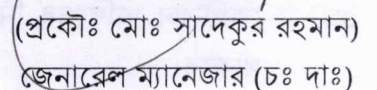 (প্রকৌঃ মোঃ সাদেকুর রহমান)
জেনারেল ম্যানেজার (চঃ দাঃ)